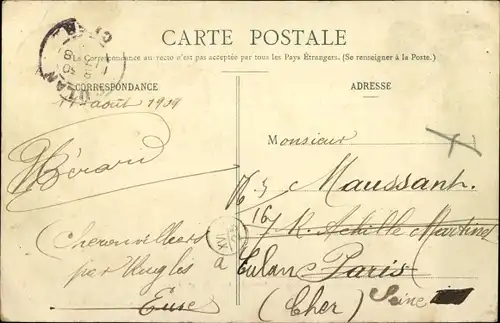 CARTE POSTALE
La Correspondance au recto n'est pas acceptée par tous les Pays Étrangers. (Se renseigner à la Poste.)
CORRESPONDANCE
ADRESSE
août
Hérard
par Rugles
Eure
Monsieur
Maussant
16 R. Achille Martinet
XVI
à Culan Paris
(Cher) Seine
CULAN
CHER